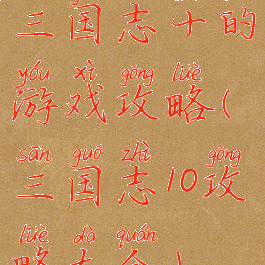 三国志十的
yóu xì gōng lüè
游戏攻略(
sān guó zhì gōng
三国志10攻
lüè dà quán
略大全)